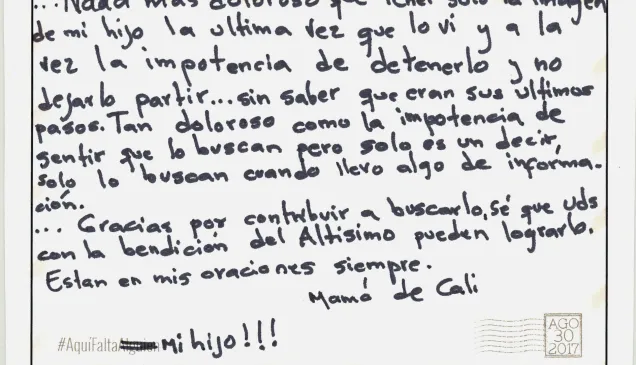 ... Nada más doloroso que tener solo la imagen
de mi hijo la ultima vez que lo vi y a la
vez la impotencia de detenerlo y no
dejarlo partir... sin saber que eran sus ultimos
pasos. Tan doloroso como la impotencia de
sentir que lo buscan pero solo es un decir,
solo lo buscan cuando llevo algo de informa-
ción.
... Gracias por contribuir a buscarlo, sé que uds
con la bendición del Altisimo pueden lograrlo.
Estan en mis oraciones siempre.
Mamá de Cali
#AquíFalta Mi hijo!!!
AGO
30
2017